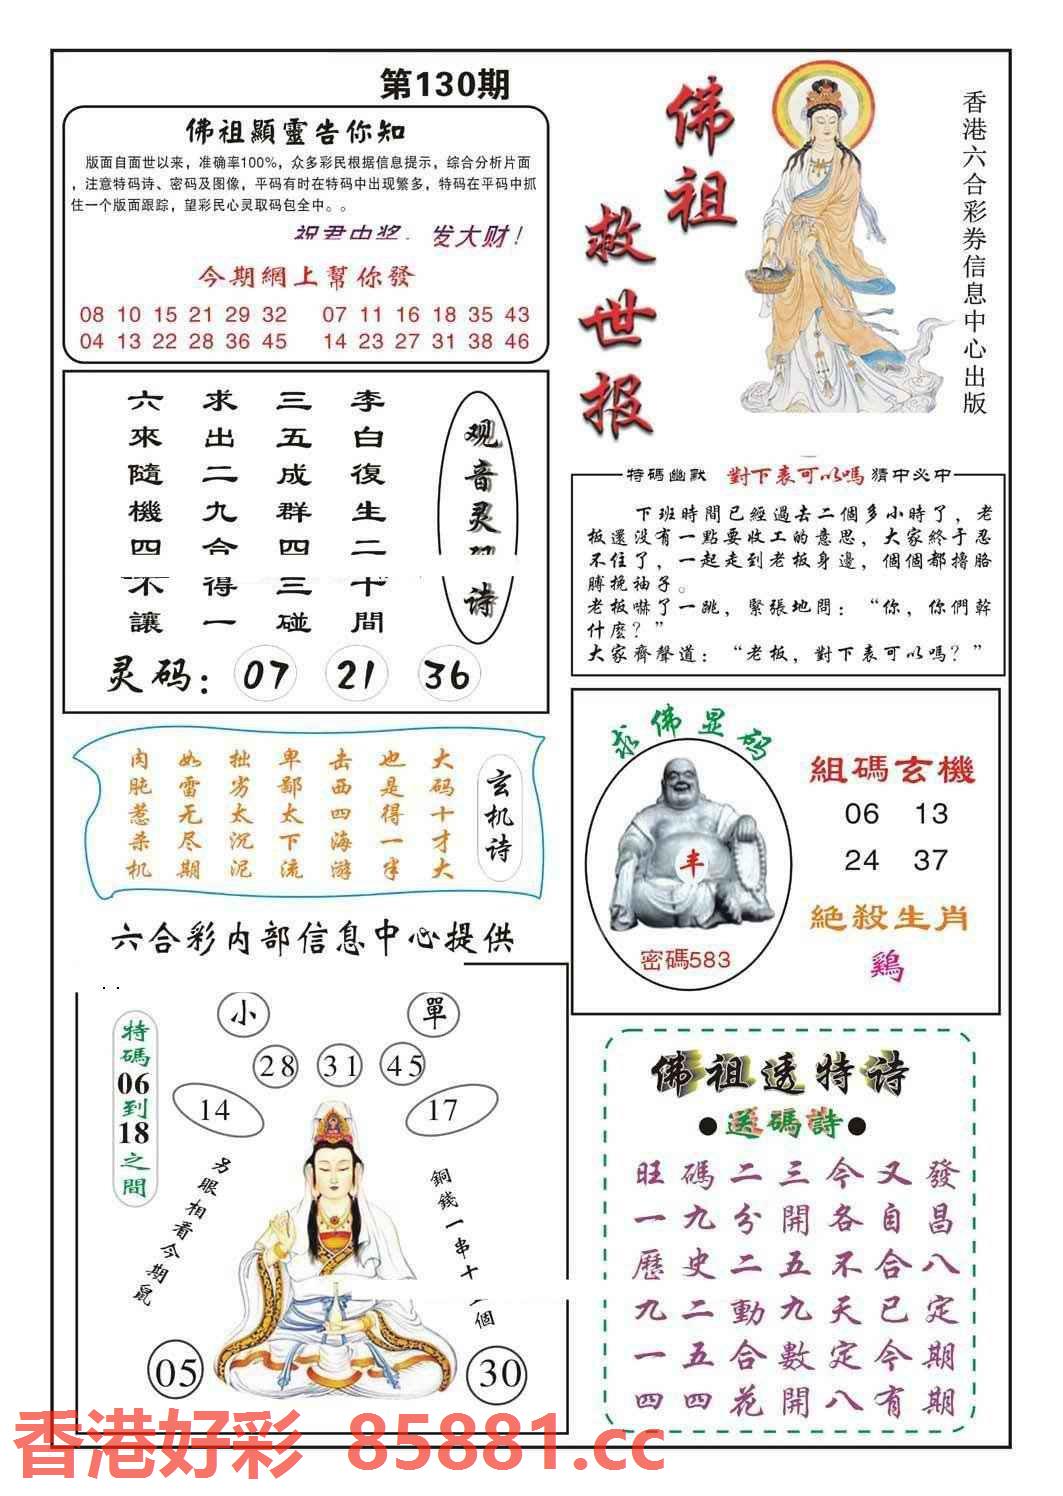 第130期
佛祖顯靈告你知
版面自面世以来，准确率100%，众多彩民根据信息提示，综合分析片面
，注意特码诗、密码及图像，平码有时在特码中出现繁多，特码在平码中抓
住一个版面跟踪，望彩民心灵取码包全中。。
祝君中奖，发大财！
今期網上幫你發
08 10 15 21 29 32 07 11 16 18 35 43
04 13 22 28 36 45 14 23 27 31 38 46
佛祖
救世报
香港六合彩券信息中心出版
观音灵码诗
李白復生二十間
三五成群四三碰
求出二九合得一
六來隨機四不讓
灵码：07 21 36
特碼幽默 對下表可以嗎 猜中必中
下班時間已經過去二個多小時了，老
板還沒有一點要收工的意思，大家終于忍
不住了，一起走到老板身邊，個個都擼胳
膊挽袖子。
老板嚇了一跳，緊張地問：“你，你們幹
什麼？”
大家齊聲道：“老板，對下表可以嗎？”
玄机诗
大码十才大
也是得一半
击西四海游
卑鄙太下流
拙劣太沉泥
如雷无尽期
肉肫惹杀机
求佛显码
丰
密碼583
組碼玄機
06 13
24 37
絕殺生肖
鷄
六合彩内部信息中心提供
特碼06到18之間
小 單
28 31 45
14 17
另眼相看今期鼠
銅錢一串十二個
05 30
佛祖透特诗
●送碼詩●
旺碼二三今又發
一九分開各自昌
歷史二五不合八
九二動九天已定
一五合數定今期
四四花開八有期
香港好彩 85881.cc